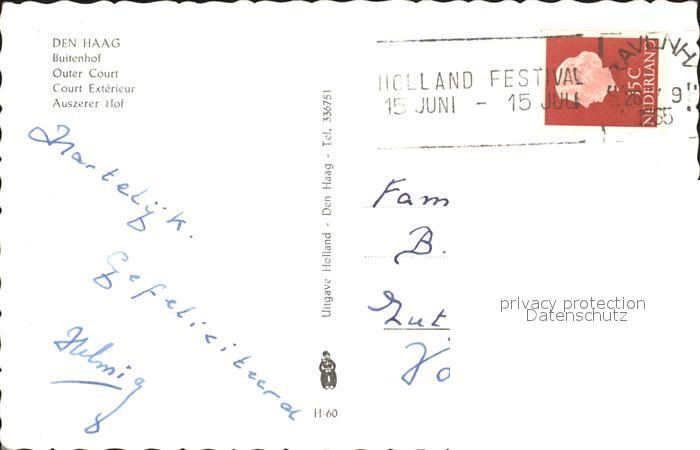 DEN HAAG
Buitenhof
Outer Court
Court Extérieur
Auszerer Hof
Hartelijk
Gefeliciteerd
Uitgave Holland - Den Haag - Tel. 336751
H-60
HOLLAND FESTIVAL
15 JUNI - 15 JULI
NEDERLAND
Fam
B.
Zut
privacy protection
Datenschutz